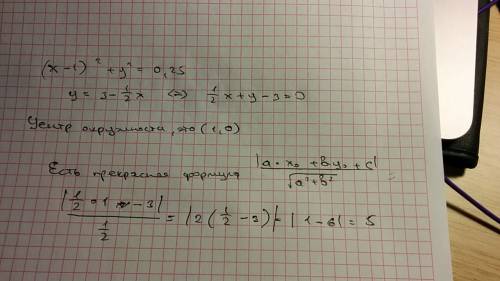 (x-1)² + y² = 0,25
y = 3 - 1/2 x (=) 1/2 x + y - 3 = 0
Центр окружности, это (1,0)
Есть прекрасная формула |a·x₀ + By₀ + c| / √(a²+b²) =
|1/2 · 1 - 3| / 1/2 = |2(1/2 - 3)| = |1-6| = 5